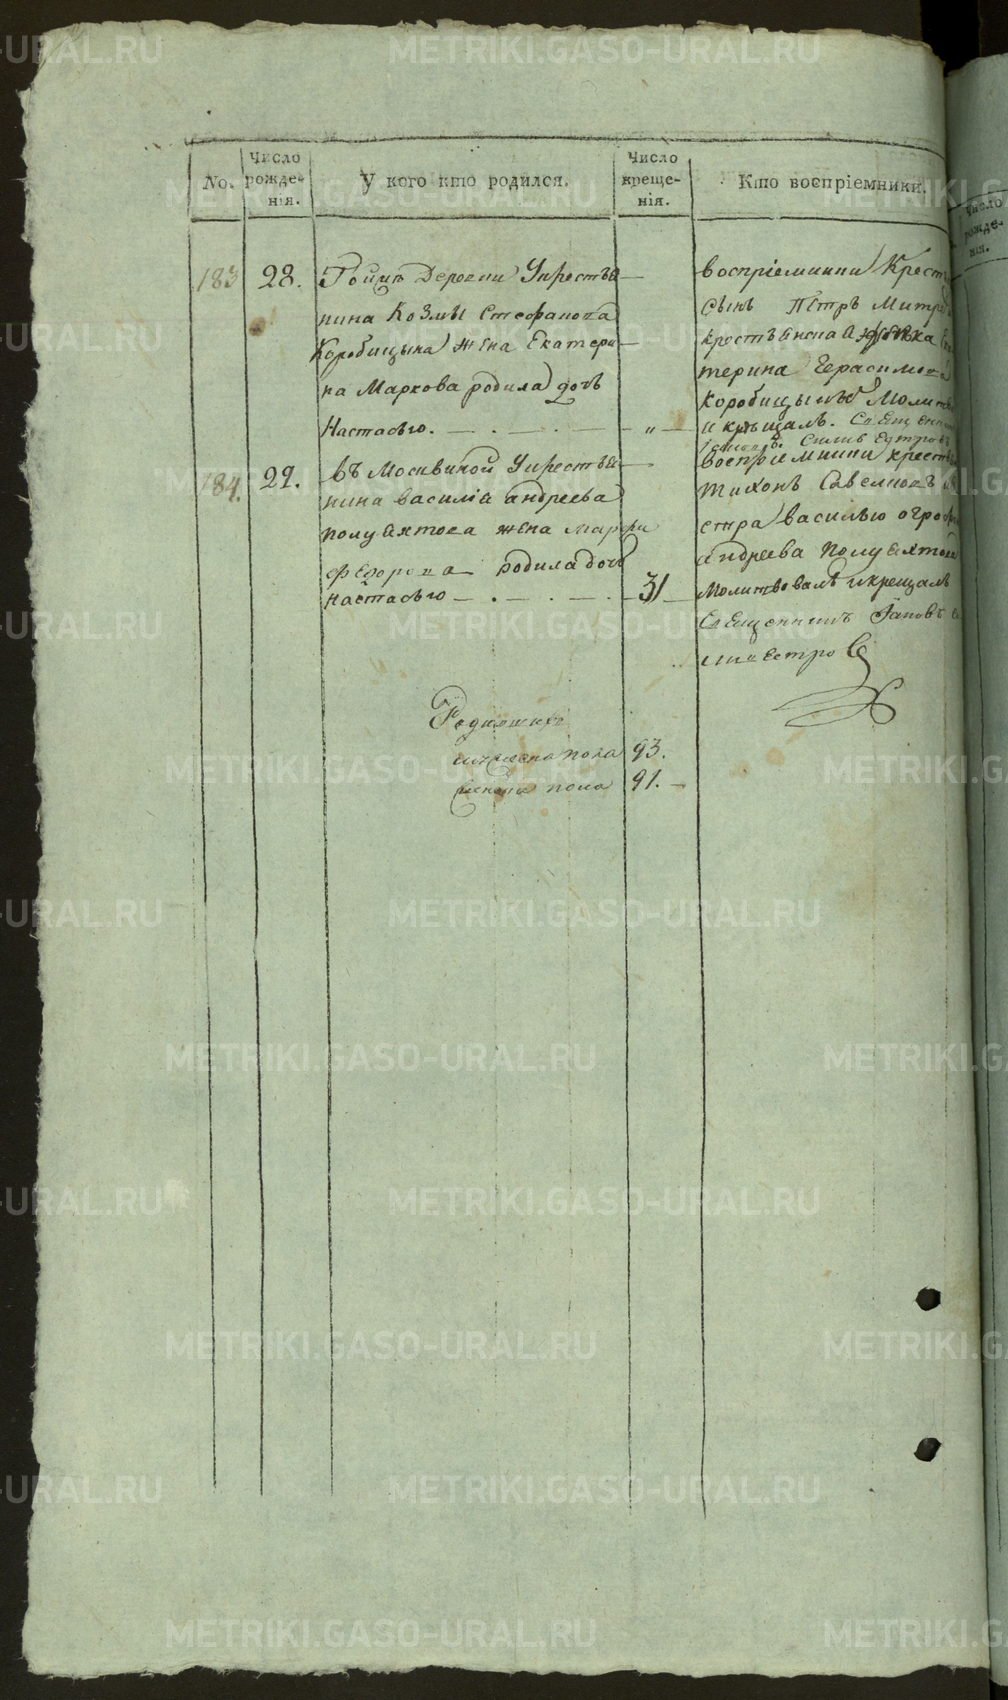 No.
Число рожде-
нія.
У кого кто родился.
Число креще-
нія.
Кто воспріемники.
183
28.
Тойжъ Деревни Укрестья
нина Козмы Стефанова
Коробицына жена Екатери
на Маркова родила дочь
Настасью.
воспріемники Крест
сынъ Пётръ Митр
крестьянская
терина Герасимова
Коробицынъ Молит
и крещалъ. Священ
184.
29.
въ Москвиной Укрестья
нина василія андреева
полуяхтова жена Марфа
Федорова родила дочь
настасью
31
воспріемники крест
тихонъ Савельевъ
василью
андреева Полуяхтова
Молитвовалъ и крещалъ
Священникъ Іаковъ
Родившихъ
мужеска пола 93.
женска пола 91.
METRIKI.GASO-URAL.RU